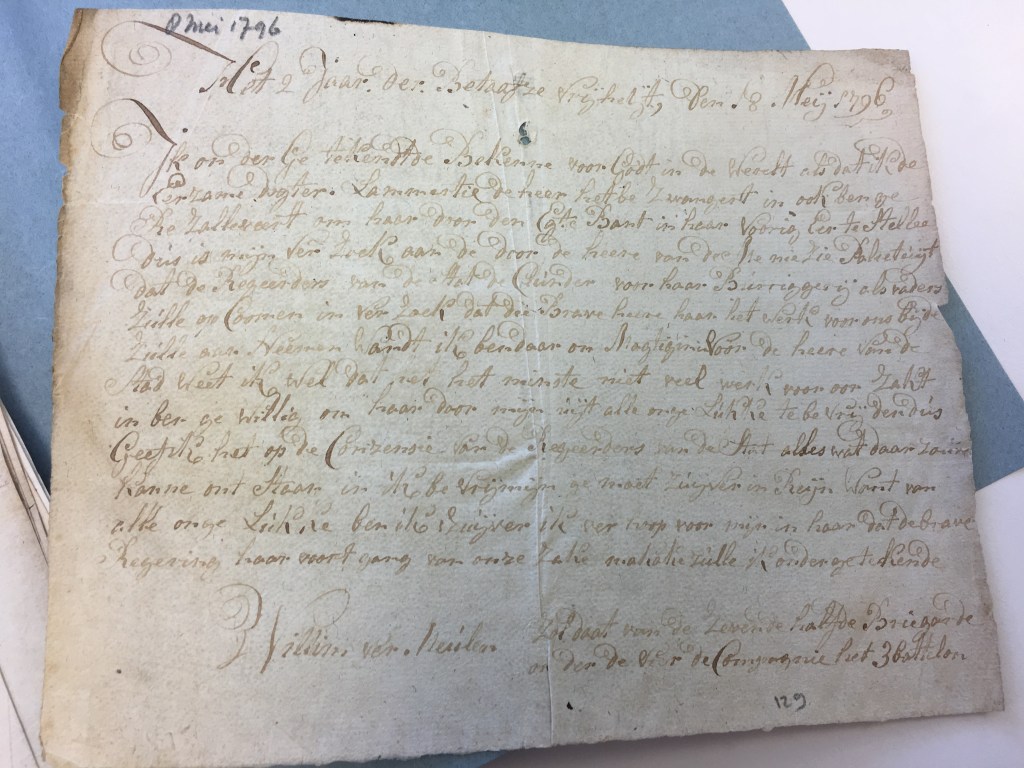 8 Mei 1796
Het 2 Jaar der Bataafze vrijheijt, den 18 Meij 1796
Ik on der Ge tekendtde Bekenne voor Godt in de Werelt als dat ik de
Eerzame dogter Lammertie de heer hebbe Zwangert in ook ben ge
om haar door den Egte Bant in haar voorig Eer te stelle
dus is mijn ver Zoek aan de door de heere van
dat de Regeerders van de Stat de Clunder voor haar Burriggerij als vaders
Zulle op Coomen in ver Zoek dat die Brave heere haar het werk voor ons
Zulle aan Neemen Wandt ik ben daar on Magtig in Voor de heere van de
Stad weet ik wel dat het minste niet veel werk voor oor Zakt
in ben ge willig om haar door mijn uijt alle onge Lukke te be vrijden dus
Geef ik het op de Conzensie van de Regeerders van de Stat alles wat daar
kanne ont Staan in ik be vrij mijn ge moet zuijver in Reijn Want van
alle onge Lukke ben ik Zuijver ik ver hoop voor mijn in haar dat de brave
Regering haar voort gang van onze Zake make zulle ik onder ge tekende
Willim ver Meulen
Zoldaat van de Zevende halfde Briegaade
on der de vier de Compagnie het 3 battelon
129